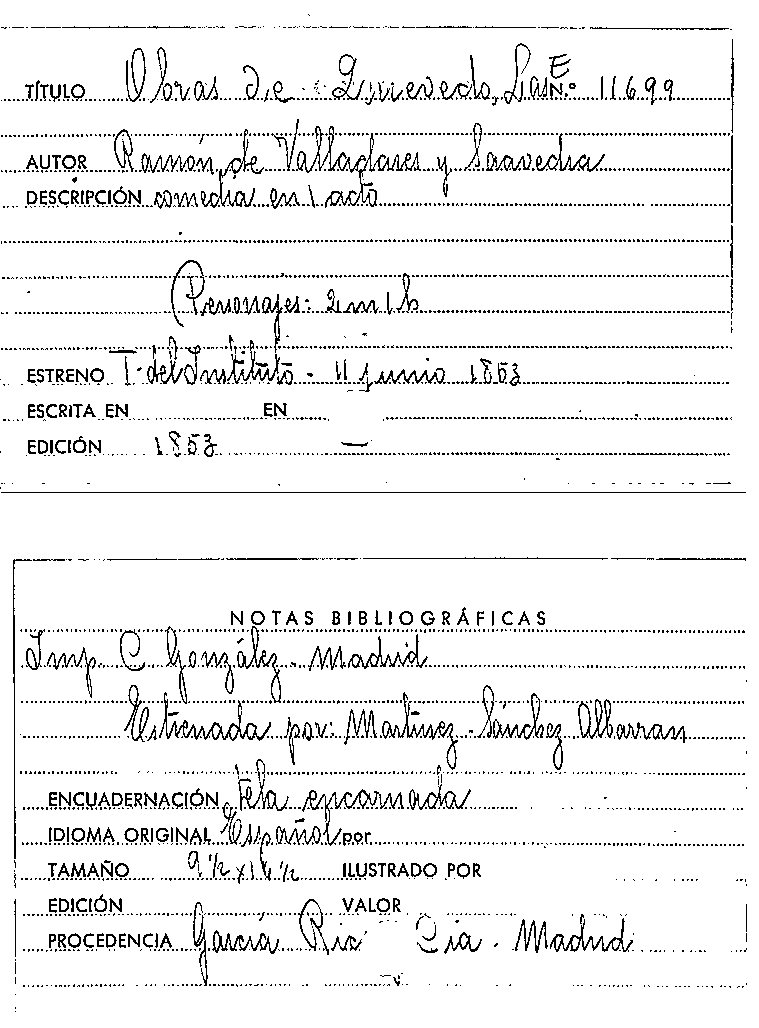 TÍTULO Obras de Quevedo, Las E N.º 11699
AUTOR Ramón de Valladares y Saavedra
DESCRIPCIÓN comedia en 1 acto
Personajes: 2 m 1 h
ESTRENO T. del Instituto - 11 junio 1853
ESCRITA EN EN
EDICIÓN 1853 —
NOTAS BIBLIOGRÁFICAS
Imp. C. González - Madrid
Estrenada por: Martinez - Sánchez Albarran
ENCUADERNACIÓN tela encarnada
IDIOMA ORIGINAL Español por
TAMAÑO 9 ½ x 16 ½ ILUSTRADO POR
EDICIÓN VALOR
PROCEDENCIA García Rico Cia - Madrid